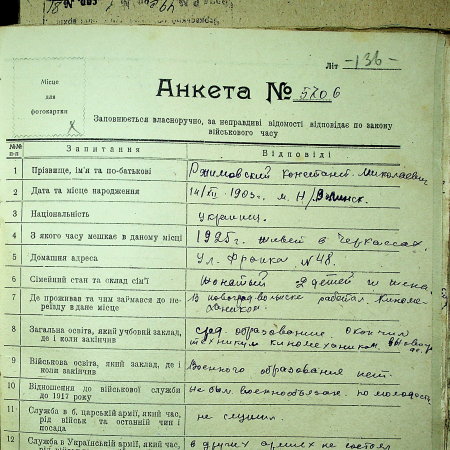 Літ -136-
Місце
для
фотокартки
Анкета № 5706
Заповнюється власноручно, за неправдиві відомості відповідає по закону
військового часу
№№ п-п Запитання Відповіді
1 Прізвище, ім'я та по-батькові Ржимовский Констант. Николаевич
2 Дата та місце народження 14/XII 1903 г. м. Н/Волинск.
3 Національність украинец.
4 З якого часу мешкає в даному місці 1925 г. живет в Черкассах.
5 Домашня адреса Ул. Франка № 48.
6 Сімейний стан та склад сім'ї Женатый 2 детей и жена.
7 Де проживав та чим займався до пе- В работал Киноме-
реїзду в дане місце хаником.
8 Загальна освіта, який учбовий заклад, сред. образование. Окончил
де і коли закінчив техникум киномехаником.
9 Військова освіта, який заклад, де і Военного образования нет.
коли закінчив
10 Відношення до військової служби Не был военнообязан. по молодости
до 1917 року
11 Служба в б. царській армії, який час, не служил
рід військ та останній чин і
посада
12 Служба в Українській армії, який час, в других армиях не состоял